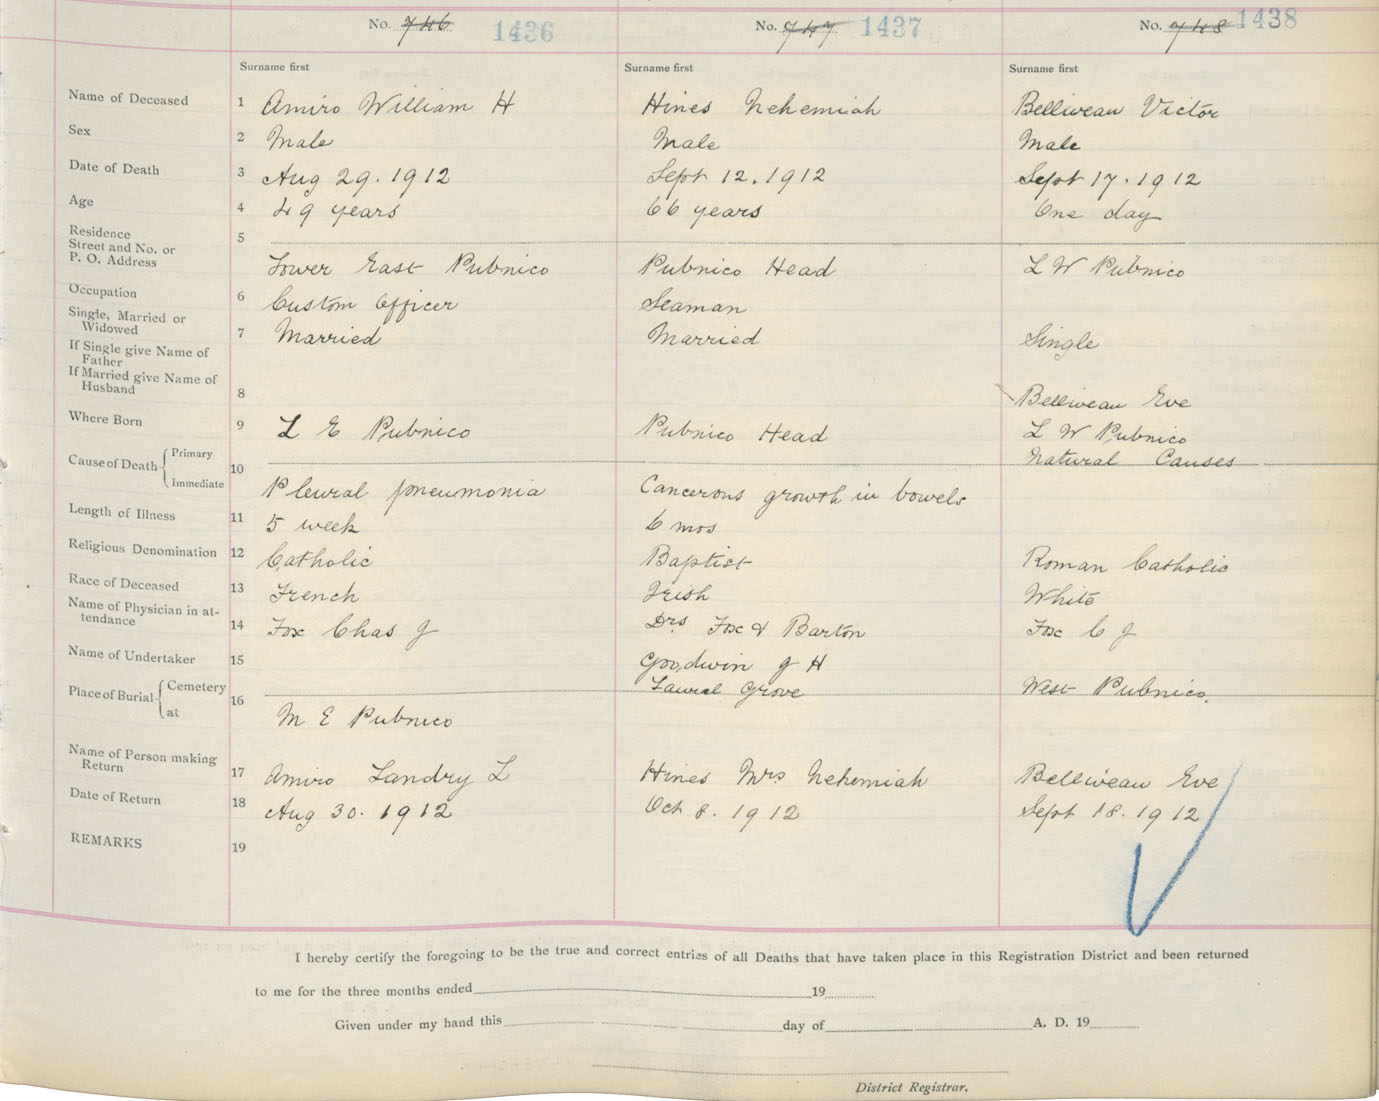 No. 746 1436 No. 747 1437 No. 748 1438
Surname first Surname first Surname first
Name of Deceased 1 Amiro William H Hines Nehemiah Belliveau Victor
Sex 2 Male Male Male
Date of Death 3 Aug 29. 1912 Sept 12. 1912 Sept 17. 1912
Age 4 49 years 66 years One day
Residence
Street and No. or 5
P. O. Address Lower East Pubnico Pubnico Head L W Pubnico
Occupation 6 Custom Officer Seaman
Single, Married or
Widowed 7 Married Married Single
If Single give Name of
Father
If Married give Name of
Husband 8 Belliveau Eve
Where Born 9 L E Pubnico Pubnico Head L W Pubnico
Cause of Death Primary 10 Natural Causes
Immediate Pleural pneumonia Cancerous growth in bowels
Length of Illness 11 5 week 6 mos
Religious Denomination 12 Catholic Baptist Roman Catholic
Race of Deceased 13 French Irish White
Name of Physician in at-
tendance 14 Fox Chas J Drs Fox & Barton Fox C J
Name of Undertaker 15 Goodwin J H
Place of Burial Cemetery 16 Laurel Grove West Pubnico.
at M E Pubnico
Name of Person making
Return 17 Amiro Landry L Hines Mrs Nehemiah Belliveau Eve
Date of Return 18 Aug 30. 1912 Oct 8. 1912 Sept 18. 1912
REMARKS 19
I hereby certify the foregoing to be the true and correct entries of all Deaths that have taken place in this Registration District and been returned
to me for the three months ended 19
Given under my hand this day of A. D. 19
District Registrar.